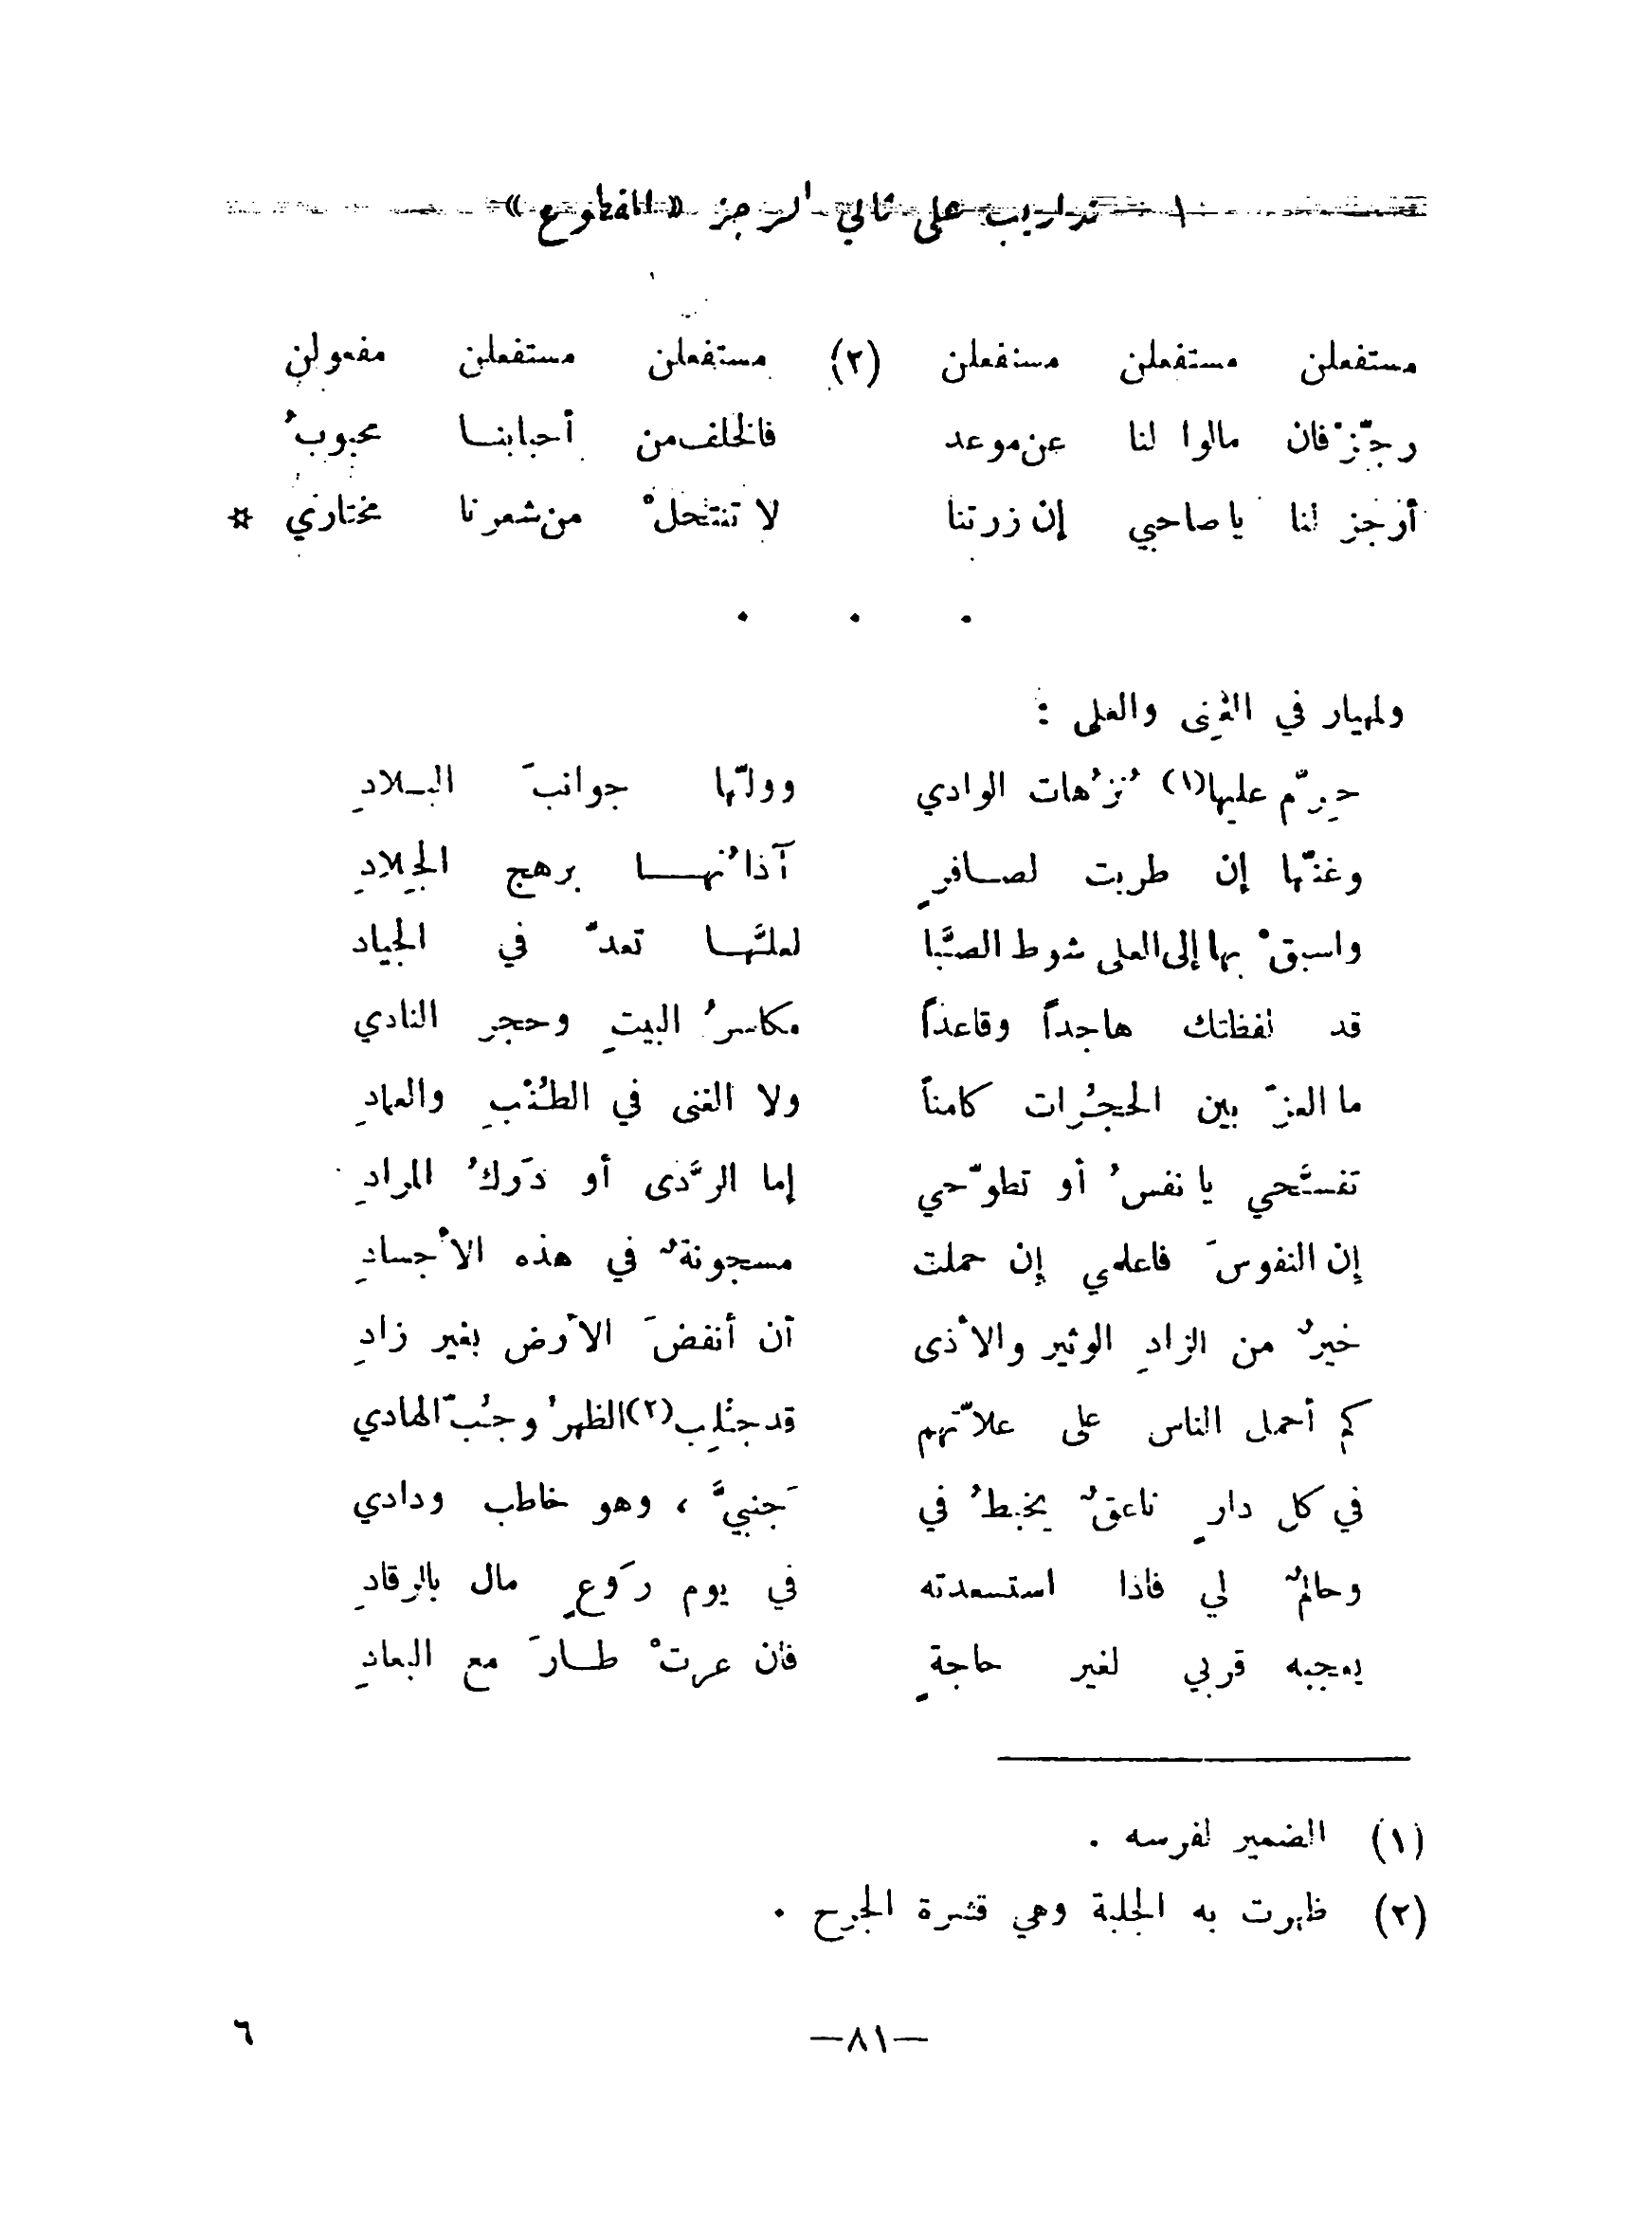 ١ — تداريب على ثاني الرجز «المقطوع»
مستفعلن مستفعلن مستفعلن (٢) مستفعلن مستفعلن مفعولن
رجّزْ فان مالوا لنا عن موعد فالخلف من أحبابنا محبوبُ
أرجز لنا يا صاحبي إن زرتنا لا تنتحلْ من شعرنا مختاري *
ولمهيار في الغِنى والعلى :
حرِّم عليها(١) نُزُهات الوادي وولّها جوانبَ البلادِ
وغنّها إن طربت لصافرٍ آذانُها برهج الجِلادِ
واسبقْ بها إلى العلى شوط الصَّبا لعلَّها تعدّ في الجياد
قد لفظتك هاجداً وقاعداً مكاسرُ البيتِ وحجر النادي
ما العزّ بين الحجُرات كامناً ولا الغنى في الطُنْبِ والعمادِ
تفسَّحي يا نفسُ أو تطوّحي إما الرَّدى أو دَركُ المرادِ
إن النفوسَ فاعلمي إن حملت مسجونةٌ في هذه الأجسادِ
خيرٌ من الزادِ الوثير والأذى أن أنفضَ الأرض بغير زادِ
كم أحمل الناس على علاّتهم قد جُلِب(٢) الظهرُ وجُبّ الهادي
في كل دارٍ ناعقٌ يخبطُ في جَنبيَّ ، وهو خاطب ودادي
وحالمٌ لي فاذا استسعدته في يوم رَوعٍ مال بالرقادِ
يعجبه قربي لغير حاجةٍ فان عرتْ طارَ مع البعادِ
(١) الضمير لفرسه .
(٢) ظهرت به الجلبة وهي قشرة الجرح .
—٨١— ٦